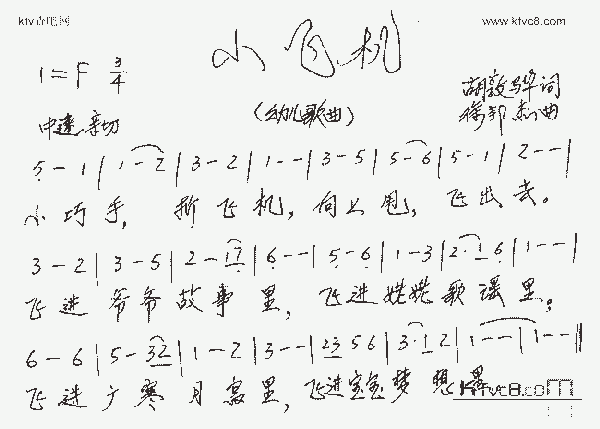 ktv吉吧网 www.ktvc8.com
小飞机
1=F 3/4
(幼儿歌曲)
胡敦骅词
中速 亲切
徐邦杰曲
5 - 1 | 1 - 2 | 3 - 2 | 1 - - | 3 - 5 | 5 - 6 | 5 - 1 | 2 - - |
小巧手, 折飞机, 向上甩, 飞出去。
3 - 2 | 3 - 5 | 2 - 17 | 6 - - | 5 - 6 | 1 - 3 | 2 · 1 6 | 1 - - |
飞进爷爷故事里, 飞进姥姥歌谣里;
6 - 6 | 5 - 32 | 1 - 2 | 3 - - | 23 5 6 | 3 · 1 2 | 1 - - | 1 - - ||
飞进广寒月宫里, 飞进宝宝梦想里
ktvc8.com